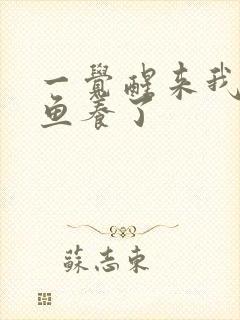 一覺醒来我
鱼养了
蘇志東